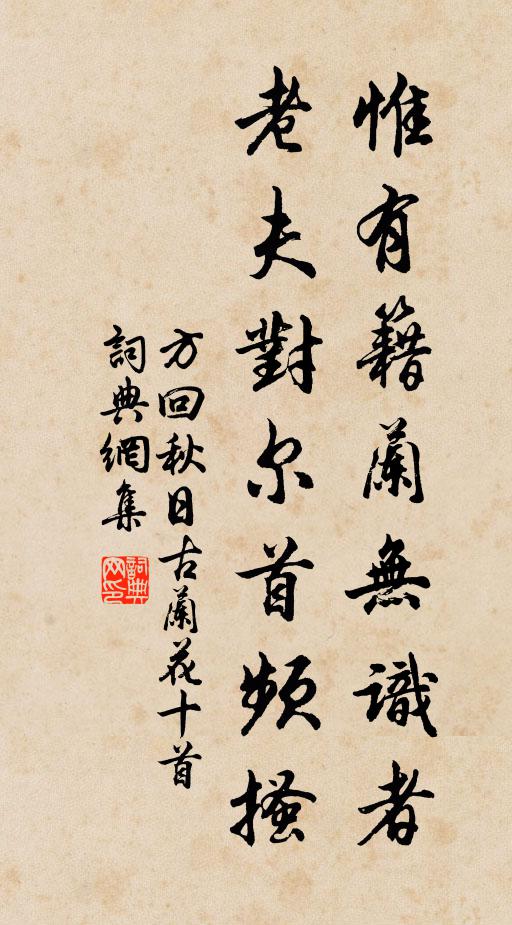 惟有籍蘭無識者
老夫對尔首頻搔
方回秋日古蘭花十首
詞典網集
詞典網印